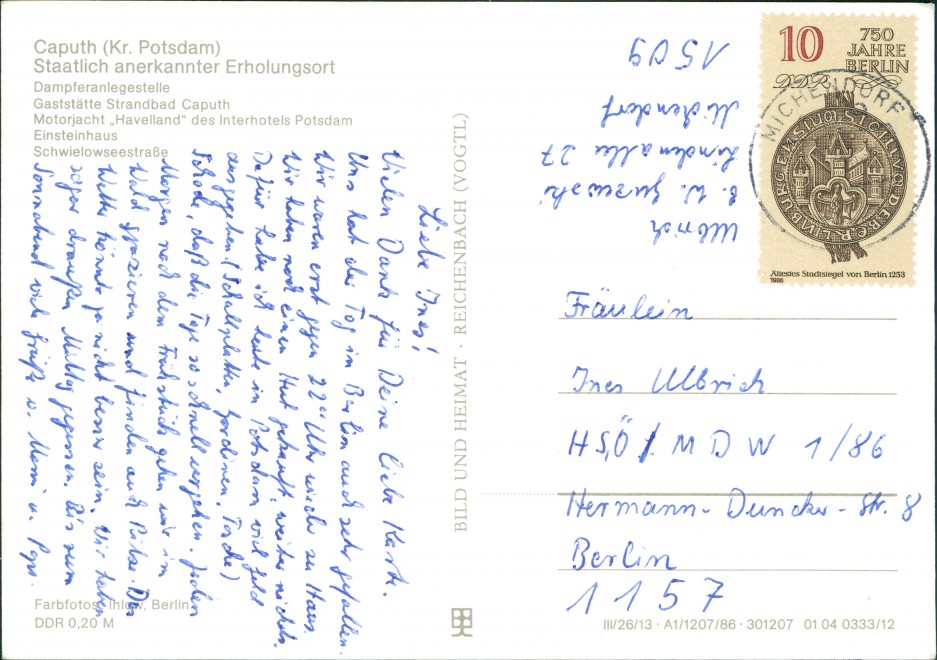 Caputh (Kr. Potsdam)
Staatlich anerkannter Erholungsort
Dampferanlegestelle
Gaststätte Strandbad Caputh
Motorjacht „Havelland" des Interhotels Potsdam
Einsteinhaus
Schwielowseestraße
Liebe Ines!
Vielen Dank für Deine liebe Karte.
Uns hat der Tag in Berlin auch sehr gefallen.
Wir waren erst gegen 22°° Uhr wieder zu Haus.
Wir haben noch einen Hut gekauft, weiter nichts.
Dafür habe ich heute in Potsdam viel Geld
ausgegeben. (Schallplatten, Gardinen, Tasche)
Schade, daß die Tage so schnell vergehen. Jeden
Morgen nach dem Frühstück gehen wir im
Wald spazieren und finden auch Pilze. Das
Wetter könnte ja nicht besser sein. Wir haben
sogar draußen Mittag gegessen. Bis zum
Sonnabend viele Grüße v. Mami u. Papi.
Farbfotos: Ihlow, Berlin
DDR 0,20 M
BILD UND HEIMAT · REICHENBACH (VOGTL)
Ulbrich
b. W.
Lindenallee 27
Michendorf
1509
10
750
JAHRE
BERLIN
DDR
Ältestes Stadtsiegel von Berlin 1253
1986
MICHENDORF
Fräulein
Ines Ulbrich
HSÖ / MDW 1/86
Hermann-Duncker-Str. 8
Berlin
1157
III/26/13 · A1/1207/86 · 301207 01 04 0333/12